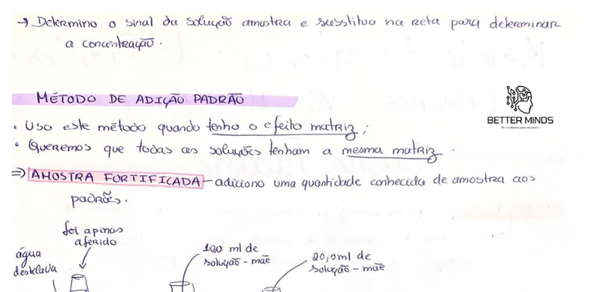 → Determino o sinal da solução amostra e substituo na reta para determinar
a concentração.
MÉTODO DE ADIÇÃO PADRÃO
BETTER MINDS
• Uso este método quando tenho o efeito matriz;
• Queremos que todas as soluções tenham a mesma matriz.
⇒ AMOSTRA FORTIFICADA - adiciono uma quantidade conhecida de amostra aos
padrões.
foi apenas
aferido
água
destilada
1,00 ml de
solução-mãe
20,0ml de
solução-mãe